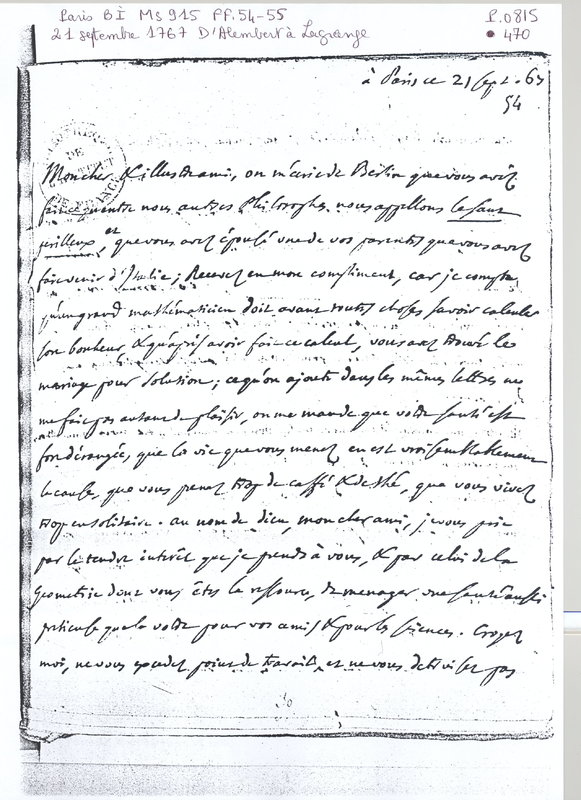 Paris BI Ms 915 FF. 54-55
P. 0815
21 septembre 1767 D'Alembert à Lagrange
• 470
à Paris ce 21 sept. 67
54
DE
Mon cher & illustre ami, on m'écrit de Berlin que vous avez
fait ce qu'entre nous autres Philosophes nous appellons le saut
perilleux, et que vous avez épousé une de vos parentes que vous avez
fait venir d'Italie; Recevez en mon compliment, car je compte
qu'un grand mathématicien doit avant toutes choses savoir calculer
son bonheur, & qu'après avoir fait ce calcul, vous avez trouvé le
mariage pour solution; ce qu'on ajoute dans les mêmes lettres ne
me fait pas autant de plaisir, on me mande que votre santé est
fort dérangée, que la vie que vous menez en est vraisemblablement
la cause, que vous prenez trop de caffé & de thé, que vous vivez
trop en solitaire. au nom de dieu, mon cher ami, je vous prie
par le tendre intérêt que je prends à vous, & par celui de la
Geometrie dont vous êtes la ressource, de menager une santé aussi
precieuse que la votre pour vos amis & pour les sciences. Croyez
moi, ne vous excedez point de travail, et ne vous pas